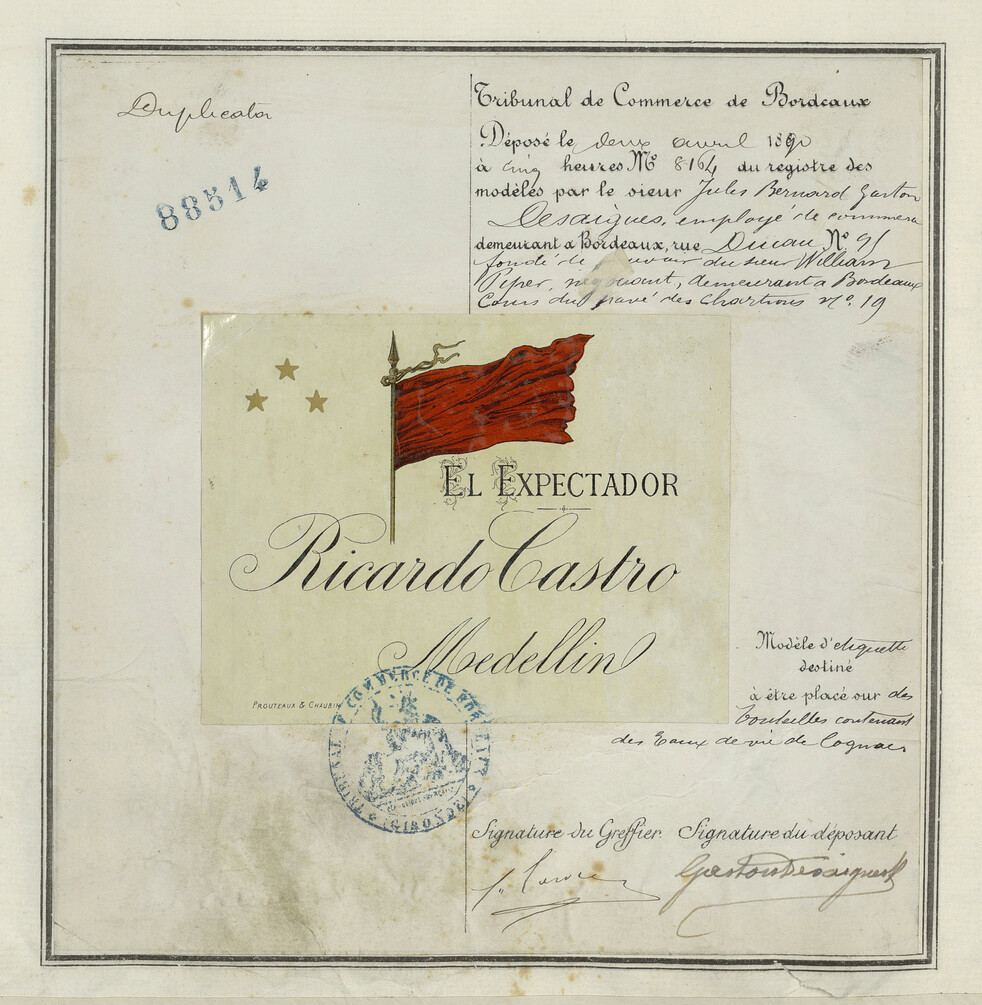 Duplicata
88514
Tribunal de Commerce de Bordeaux
Déposé le deux avril 1890
à cinq heures No 8164 du registre des
modèles par le sieur Jules Bernard Gaston
Desaigues, employé de commerce
demeurant a Bordeaux, rue No 91
fondé de pouvoir du sieur William
Piper, négociant, demeurant a Bordeaux
Cours du pavé des Chartrons No. 19
EL EXPECTADOR
Ricardo Castro
Medellin
PROUTEAUX & CHAUBIN
TRIBUNAL DE COMMERCE DE BORDEAUX
(GIRONDE)
Modèle d'etiquette
destiné
à être placé sur des
bouteilles contenant
des Eaux de vie de Cognac
Signature du Greffier. Signature du déposant
Gaston Desaigues